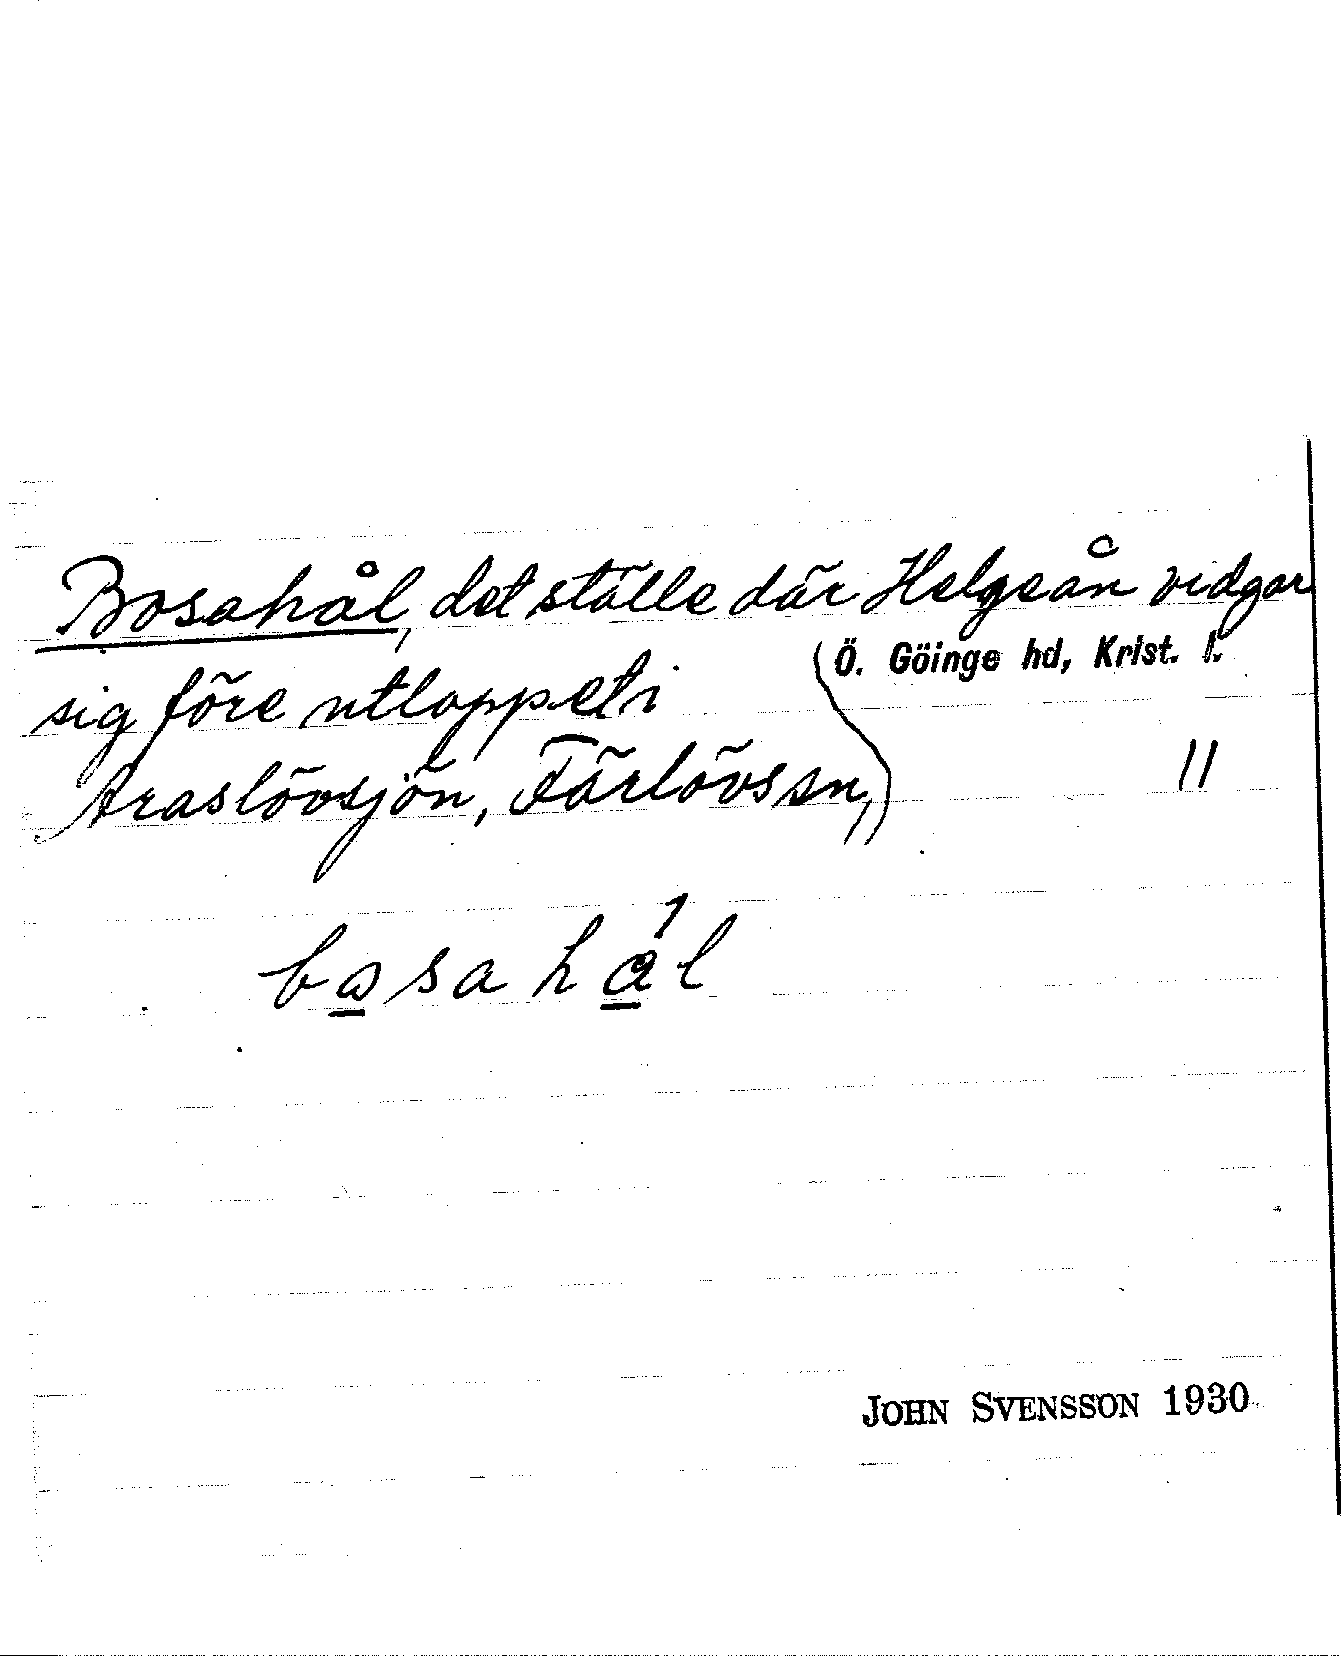 Bosahål, det ställe där Helgeån vidgar
Ö. Göinge hd, Krist. l.
sig före utloppet i
Araslövsjön, Färlövs sn,
11
bosahål
JOHN SVENSSON 1930